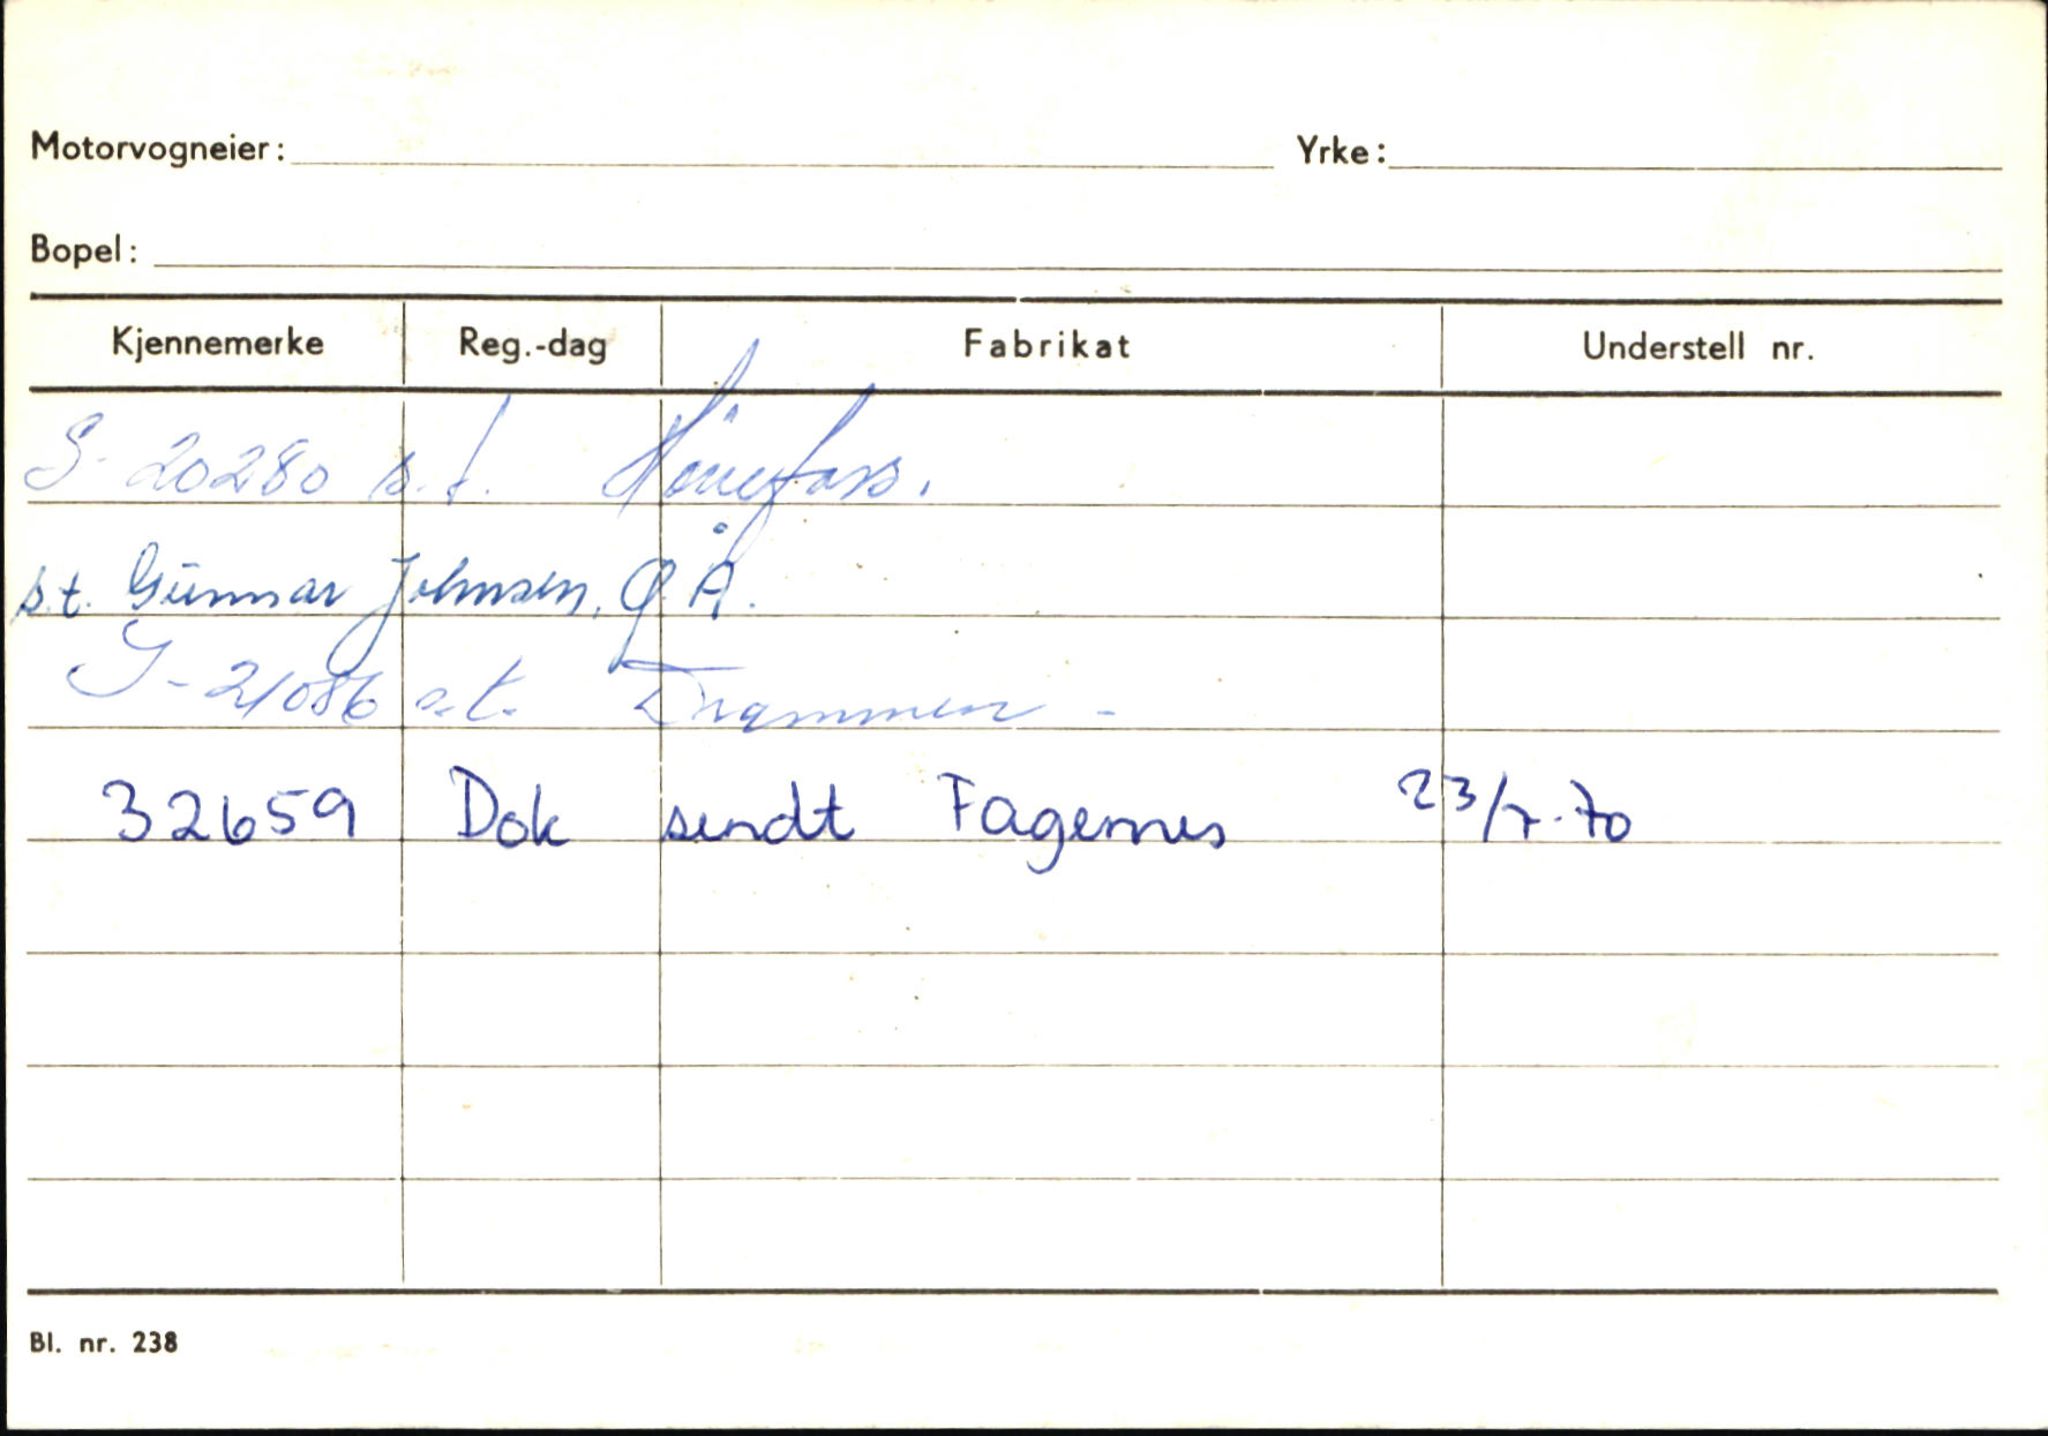 Motorvogneier: Yrke:
Bopel:
Kjennemerke Reg.-dag Fabrikat Understell nr.
S-20280 s.t. Hönefoss.
s.t. Gunnar Johnsen, Ø.Å.
S-21086 s.t. Drammen -
32659 Dok sendt Fagernes 23/7-70
Bl. nr. 238